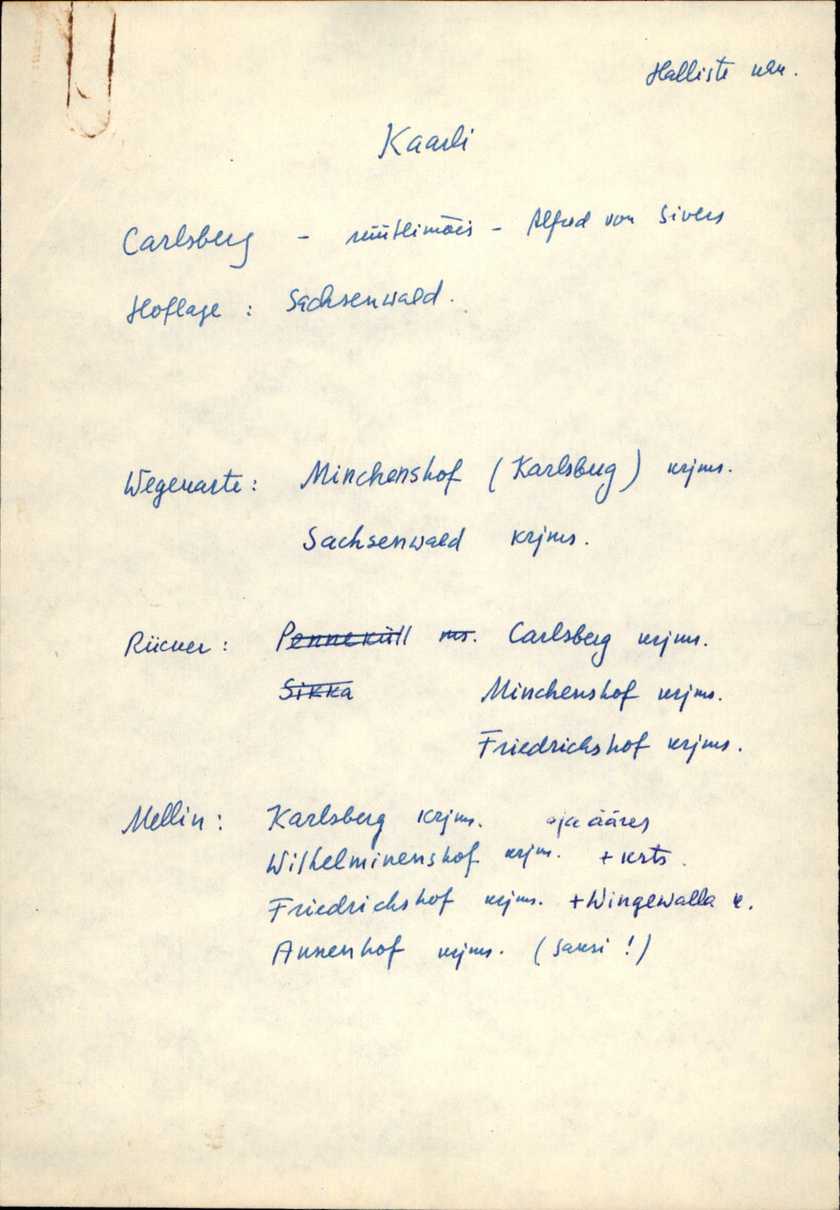 Halliste khk.
Kaarli
Carlsberg - rüütlimõis - Alfred von Sivers
Hoflage : Sachsenwald.
Wegekarte : Minchenshof (Karlsberg) krjms.
Sachsenwald krjms.
Rücker : Penneküll ms. Carlsberg krjms.
Sikka Minchenshof krjms.
Friedrichshof krjms.
Mellin : Karlsberg krjm. oja ääres
Wilhelminenshof krjm. + krts.
Friedrichshof krjms. + Wingewalla k.
Annenhof krjms. (Saksi !)